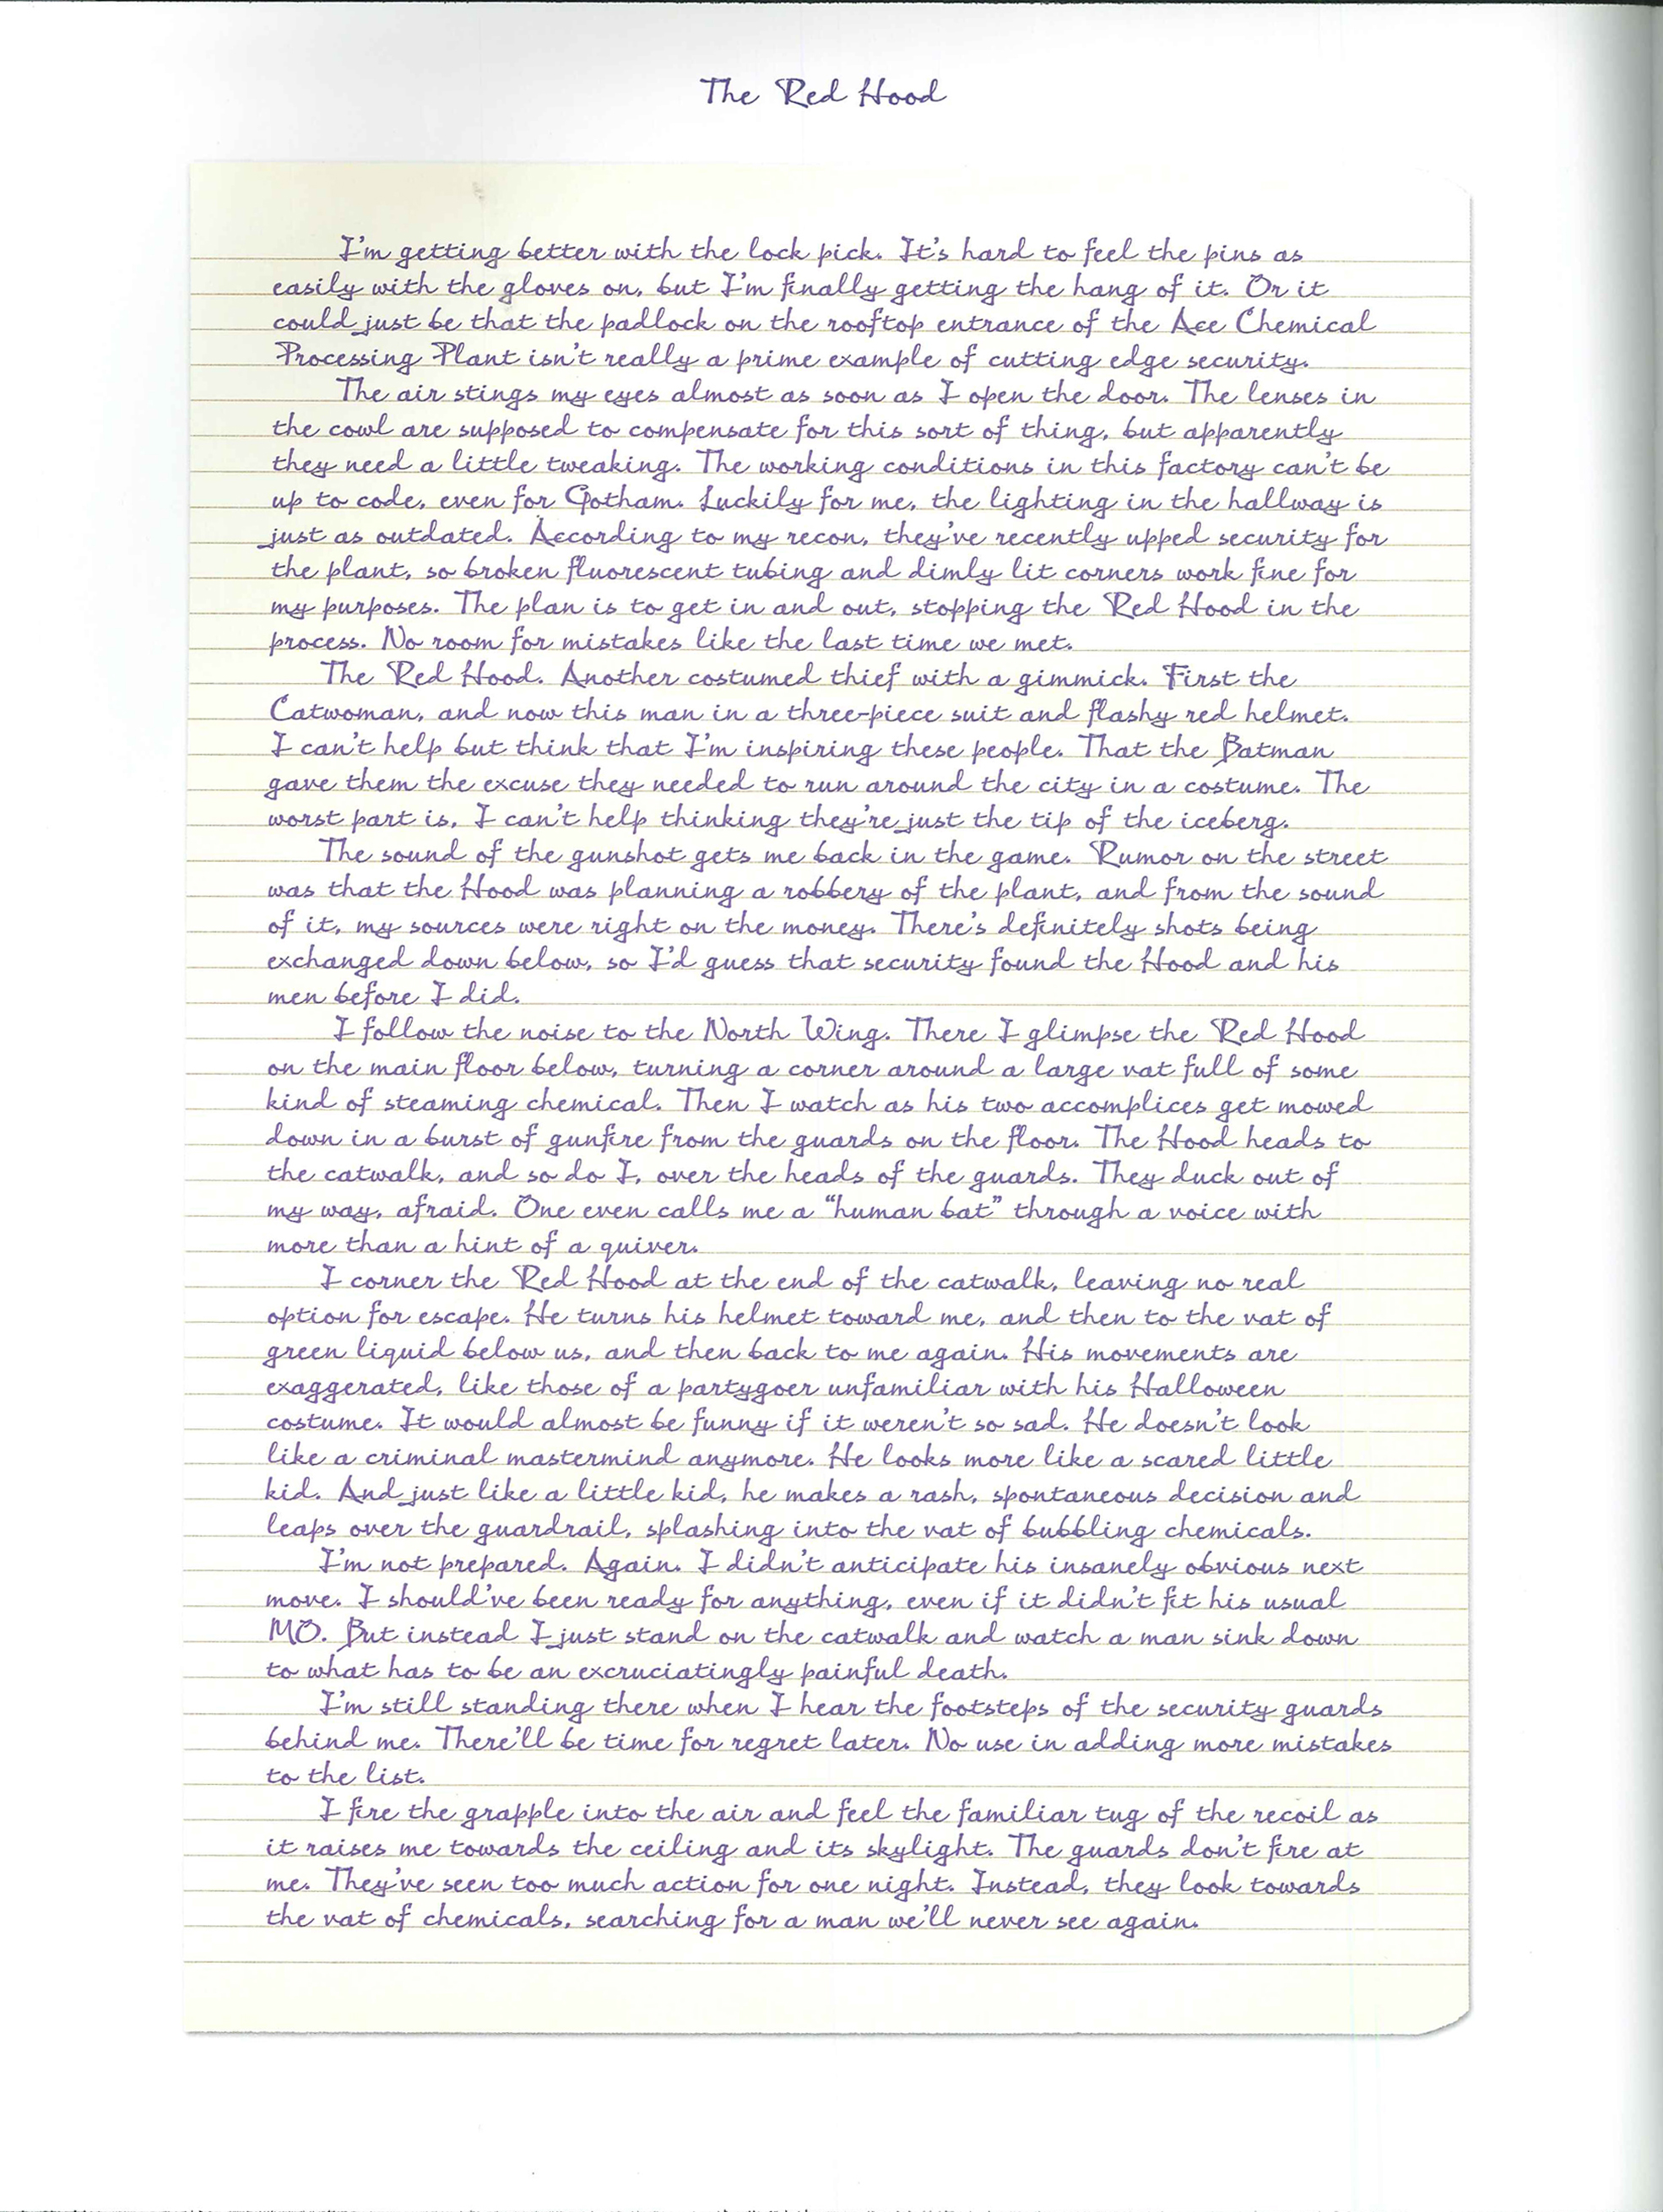 The Red Hood
I'm getting better with the lock pick. It's hard to feel the pins as
easily with the gloves on, but I'm finally getting the hang of it. Or it
could just be that the padlock on the rooftop entrance of the Ace Chemical
Processing Plant isn't really a prime example of cutting edge security.
The air stings my eyes almost as soon as I open the door. The lenses in
the cowl are supposed to compensate for this sort of thing, but apparently
they need a little tweaking. The working conditions in this factory can't be
up to code, even for Gotham. Luckily for me, the lighting in the hallway is
just as outdated. According to my recon, they've recently upped security for
the plant, so broken fluorescent tubing and dimly lit corners work fine for
my purposes. The plan is to get in and out, stopping the Red Hood in the
process. No room for mistakes like the last time we met.
The Red Hood. Another costumed thief with a gimmick. First the
Catwoman, and now this man in a three-piece suit and flashy red helmet.
I can't help but think that I'm inspiring these people. That the Batman
gave them the excuse they needed to run around the city in a costume. The
worst part is, I can't help thinking they're just the tip of the iceberg.
The sound of the gunshot gets me back in the game. Rumor on the street
was that the Hood was planning a robbery of the plant, and from the sound
of it, my sources were right on the money. There's definitely shots being
exchanged down below, so I'd guess that security found the Hood and his
men before I did.
I follow the noise to the North Wing. There I glimpse the Red Hood
on the main floor below, turning a corner around a large vat full of some
kind of steaming chemical. Then I watch as his two accomplices get mowed
down in a burst of gunfire from the guards on the floor. The Hood heads to
the catwalk, and so do I, over the heads of the guards. They duck out of
my way, afraid. One even calls me a "human bat" through a voice with
more than a hint of a quiver.
I corner the Red Hood at the end of the catwalk, leaving no real
option for escape. He turns his helmet toward me, and then to the vat of
green liquid below us, and then back to me again. His movements are
exaggerated, like those of a partygoer unfamiliar with his Halloween
costume. It would almost be funny if it weren't so sad. He doesn't look
like a criminal mastermind anymore. He looks more like a scared little
kid. And just like a little kid, he makes a rash, spontaneous decision and
leaps over the guardrail, splashing into the vat of bubbling chemicals.
I'm not prepared. Again. I didn't anticipate his insanely obvious next
move. I should've been ready for anything, even if it didn't fit his usual
MO. But instead I just stand on the catwalk and watch a man sink down
to what has to be an excruciatingly painful death.
I'm still standing there when I hear the footsteps of the security guards
behind me. There'll be time for regret later. No use in adding more mistakes
to the list.
I fire the grapple into the air and feel the familiar tug of the recoil as
it raises me towards the ceiling and its skylight. The guards don't fire at
me. They've seen too much action for one night. Instead, they look towards
the vat of chemicals, searching for a man we'll never see again.